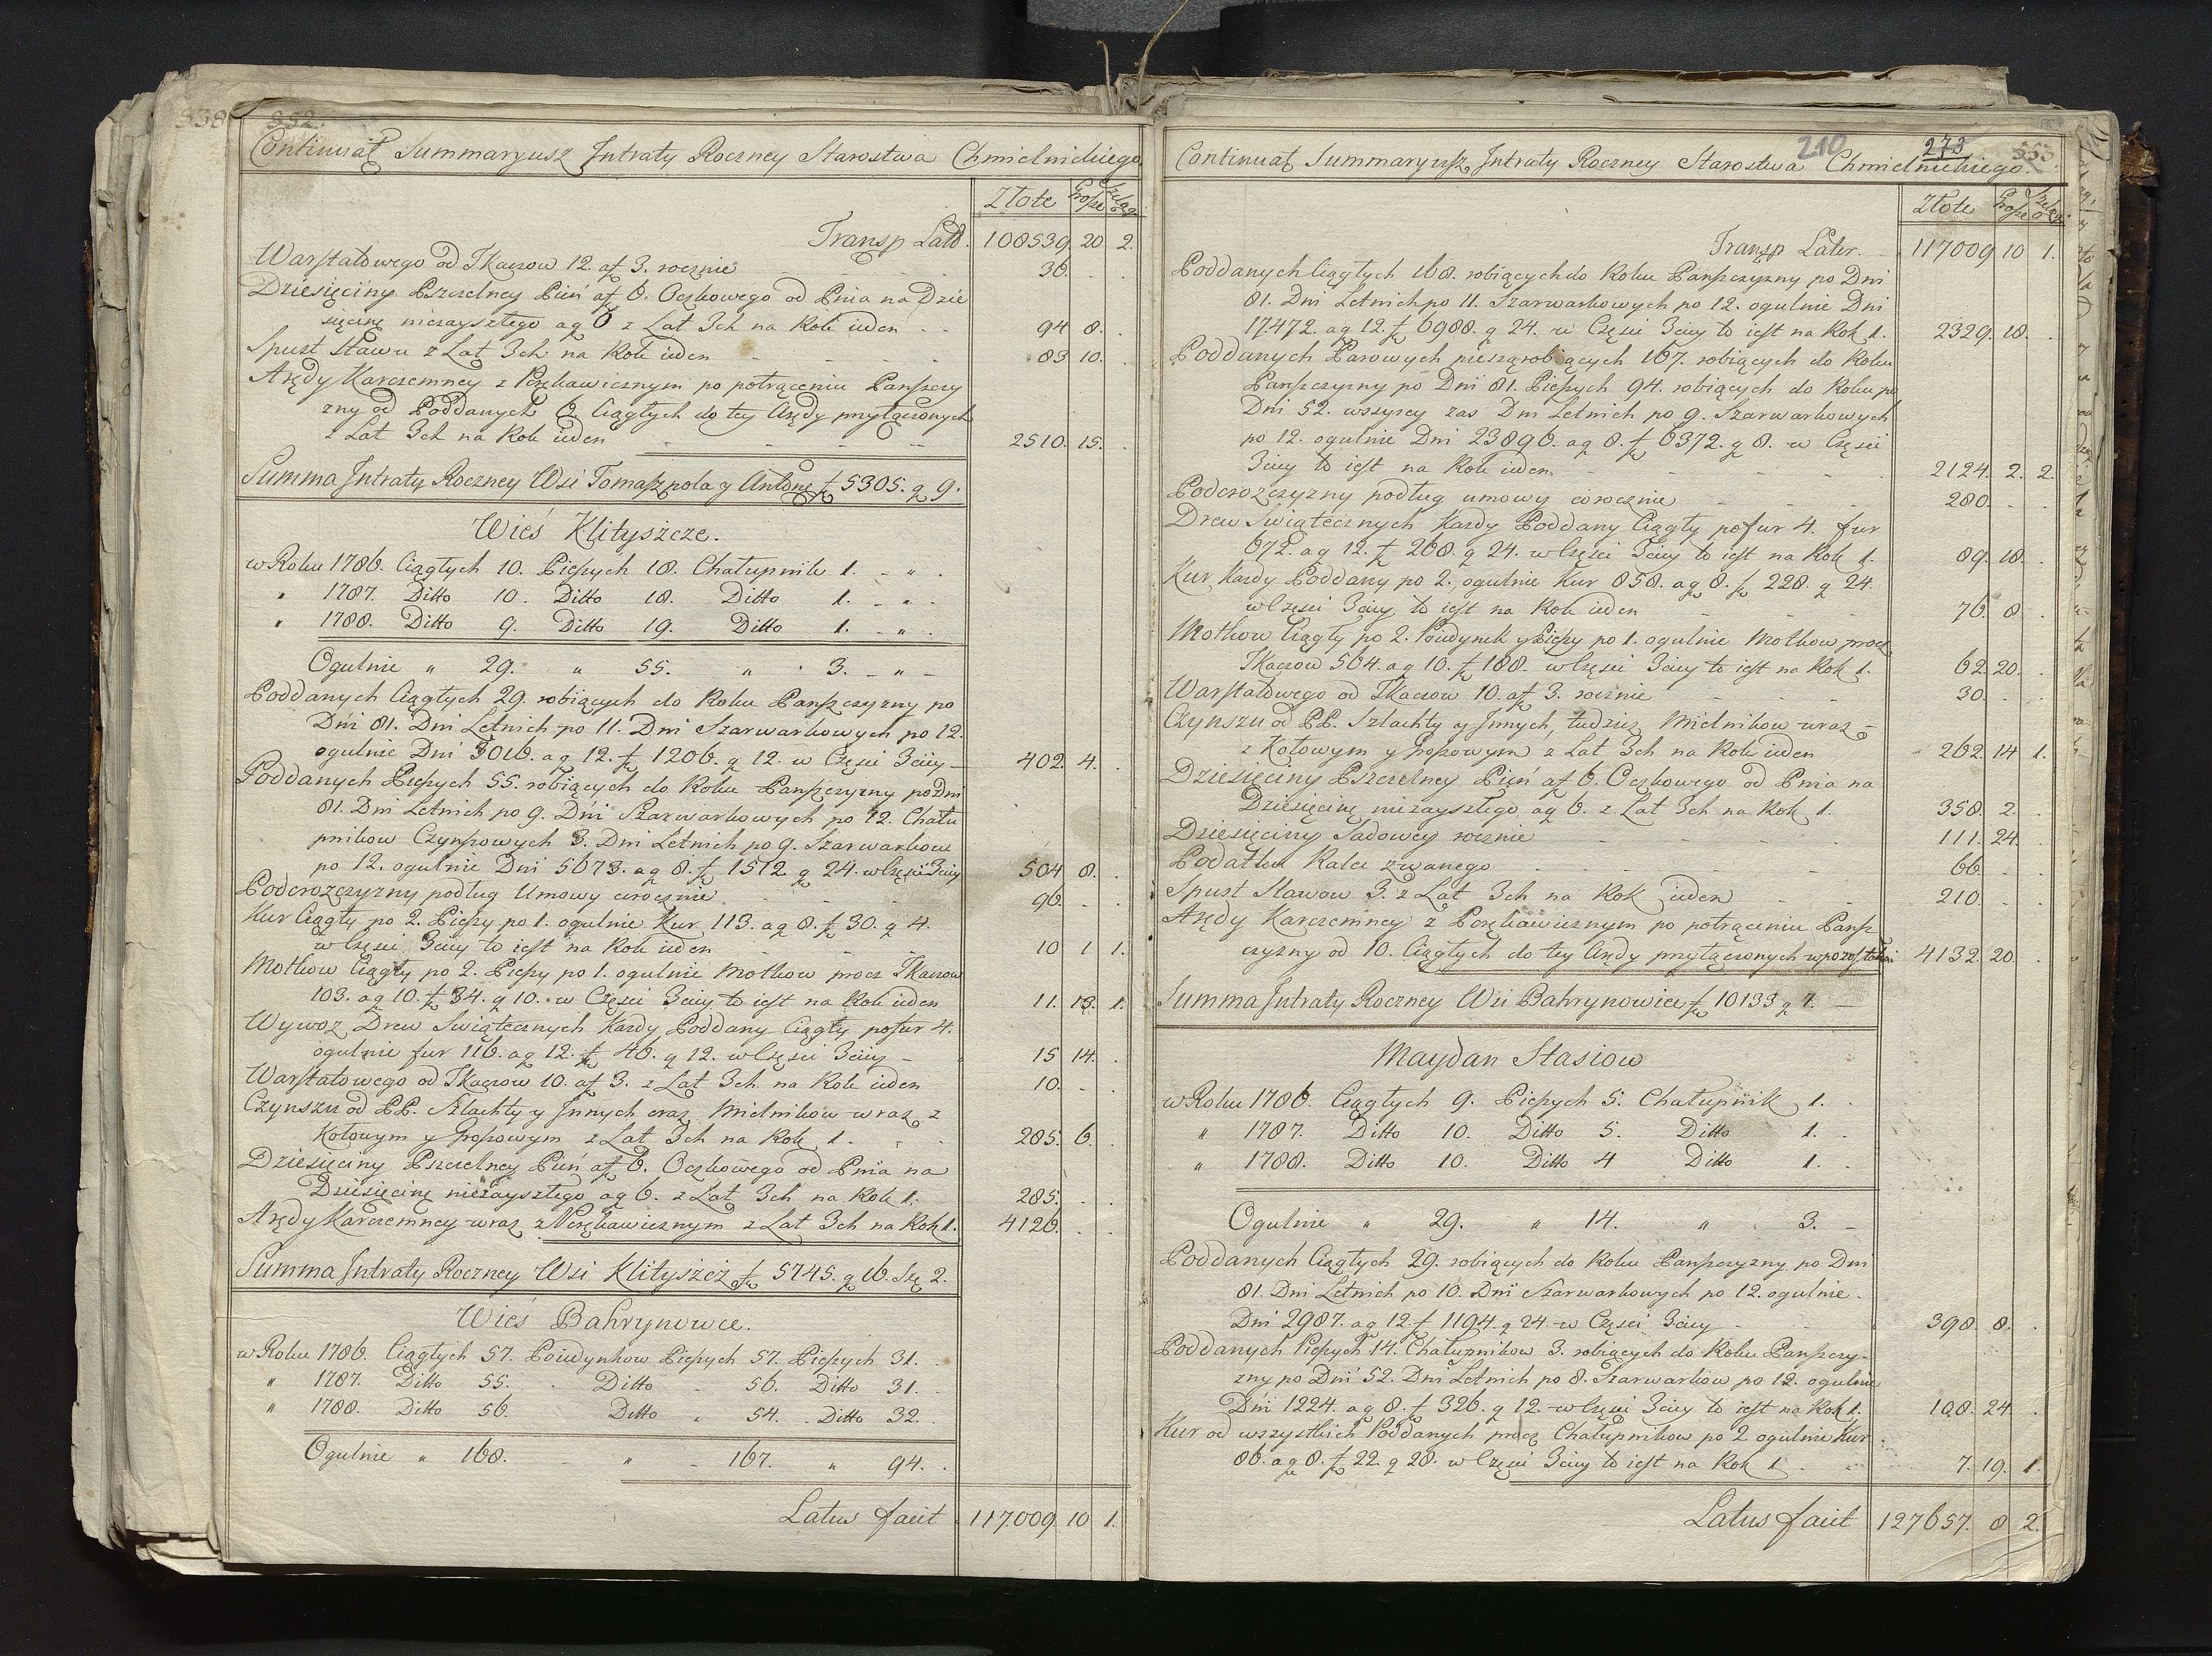 538 552.
Continuat. Summaryusz Intraty Roczney Starostwa Chmielnickiego
Złote Grosze Szeląg
Transp Lato. 108539. 20 2.
Warsztatowego od Tkaczow 12. af 3. rocznie 36.
Dziesięciny Pszczelney Pień af 6. Oczkowego od Pnia na Dzie
sięcinę niezayszłego ag 6 z Lat 3ch na Rok ieden 94 8.
Spust Stawu z Lat 3ch na Rok ieden 83 10.
Arędy Karczemney z Porękawicznym po potrąceniu Panszczy
zny od Poddanych 6. Ciągłych do tey Arędy przyłączonych
z Lat 3ch na Rok ieden 2510. 15.
Summa Intraty Roczney Wsi Tomaszpola y Antone f 5305. g 9.
Wieś Klityszcze.
w Roku 1786. Ciągłych 10. Pieszych 18. Chałupnik 1. - " .
" 1787. Ditto 10. Ditto 18. Ditto 1. - " .
" 1788. Ditto 9. Ditto 19. Ditto 1. - " .
Ogulnie " 29. " 55. " 3. - " -
Poddanych Ciągłych 29. robiących do Roku Panszczyzny po
Dni 81. Dni Letnich po 11. Dni Szarwarkowych po 12.
ogulnie Dni 3016. ag 12. f 1206. g 12. w Częsci 3ciey 402. 4.
Poddanych Pieszych 55. robiących do Roku Panszczyzny po Dni
81. Dni Letnich po 9. Dni Szarwarkowych po 12. Chału
pnikow Czynszowych 3. Dni Letnich po 9. Szarwarkow
po 12. ogulnie Dni 5673. ag 8. f 1512 g 24. w Częsci 3ciey 504 8.
Podorozczyzny podług Umowy corocznie 96.
Kur Ciągły po 2. Pieszy po 1. ogulnie Kur 113. ag 8. f 30. g 4.
w Częsci 3ciey to iest na Rok ieden 10 1 1.
Motkow Ciągły po 2. Pieszy po 1. ogulnie Motkow procz Tkaczow
103. ag 10. f 34. g 10. w Częsci 3ciey to iest na Rok ieden 11. 13. 1.
Wywoz Drew Swiątecznych Kazdy Poddany Ciągły po fur 4.
ogulnie fur 116. ag 12. f 46. g 12. w Częsci 3ciey 15 14.
Warsztatowego od Tkaczow 10. af 3. z Lat 3ch na Rok ieden 10.
Czynszu od PP. Szlachty y Innych oraz Mielnikow wraz z
Kotowym y Groszowym z Lat 3ch na Rok 1. 285. 6.
Dziesięciny Pszczelney Pień af 6. Oczkowego od Pnia na
Dziesięcinę niezayszłego ag 6. z Lat 3ch na Rok 1. 285.
Arędy Karczemney wraz z Porękawicznym z Lat 3ch na Rok 1. 4126.
Summa Intraty Roczney Wsi Klityszcz f 5745. g 16. Szę 2.
Wieś Bahrynowce.
w Roku 1786. Ciągłych 57. Poiedynkow Pieszych 57. Pieszych 31.
" 1787. Ditto 55. Ditto 56. Ditto 31.
" 1788. Ditto 56. Ditto 54. Ditto 32.
Ogulnie " 168. " 167. " 94.
Latus facit 117009. 10 1.
210 273 553
Continuat. Summaryusz Intraty Roczney Starostwa Chmielnickiego.
Złote Grosze Szeląg
Transp Later. 117009 10 1.
Poddanych Ciągłych 168. robiących do Roku Panszczyzny po Dni
81. Dni Letnich po 11. Szarwarkowych po 12. ogulnie Dni
17472. ag 12. f 6988. g 24. w Częsci 3ciey to iest na Rok 1. 2329. 18.
Poddanych Parowych pieszą robiących 167. robiących do Roku
Panszczyzny po Dni 81. Pieszych 94. robiących do Roku po
Dni 52. wszyscy zas Dni Letnich po 9. Szarwarkowych
po 12. ogulnie Dni 23896. ag 8. f 6372. g 8. w Częsci
3ciey to iest na Rok ieden 2124. 2. 2.
Podorozczyzny podług umowy corocznie 280.
Drew Swiątecznych Kazdy Poddany Ciągły po fur 4. fur
672. ag 12. f 268. g 24. w Częsci 3ciey to iest na Rok 1. 89. 18.
Kur Kazdy Poddany po 2. ogulnie Kur 858. ag 8. f 228. g 24.
w Częsci 3ciey to iest na Rok ieden 76. 8.
Motkow Ciągły po 2. Poiedynek y Pieszy po 1. ogulnie Motkow procz
Tkaczow 564. ag 10. f 188. w Częsci 3ciey to iest na Rok 1. 62. 20.
Warsztatowego od Tkaczow 10. af 3. rocznie 30.
Czynszu od PP. Szlachty y Innych, tudziez Mielnikow wraz
z Kotowym y Groszowym z Lat 3ch na Rok ieden 262. 14 1.
Dziesięciny Pszczelney Pień af 6. Oczkowego od Pnia na
Dziesięcinę niezayszłego ag 6. z Lat 3ch na Rok 1. 358. 2.
Dziesięciny Sadowey rocznie 111. 24.
Podatku Ralce zwanego 66.
Spust Stawow 3. z Lat 3ch na Rok ieden 210.
Arędy Karczemney z Porękawicznym po potrąceniu Pansz
czyzny od 10. Ciągłych do tey Arędy przyłączonych 4132. 20.
Summa Intraty Roczney Wsi Bahrynowiec f 10133 g 7.
Maydan Stasiow
w Roku 1786. Ciągłych 9. Pieszych 5. Chałupnik 1.
" 1787. Ditto 10. Ditto 5. Ditto 1.
" 1788. Ditto 10. Ditto 4 Ditto 1.
Ogulnie " 29. " 14. " 3.
Poddanych Ciągłych 29. robiących do Roku Panszczyzny po Dni
81. Dni Letnich po 10. Dni Szarwarkowych po 12. ogulnie
Dni 2987. ag 12 f 1194. g 24 w Częsci 3ciey 398. 8.
Poddanych Pieszych 14. Chałupnikow 3. robiących do Roku Panszczy-
zny po Dni 52. Dni Letnich po 8. Szarwarkow po 12. ogulnie
Dni 1224. ag 8. f 326. g 12. w Częsci 3ciey to iest na Rok 1. 108. 24.
Kur od wszystkich Poddanych procz Chałupnikow po 2 ogulnie Kur
86. ag 8. f 22. g 28. w Częsci 3ciey to iest na Rok 1 7. 19. 1.
Latus facit 127657. 8 2.